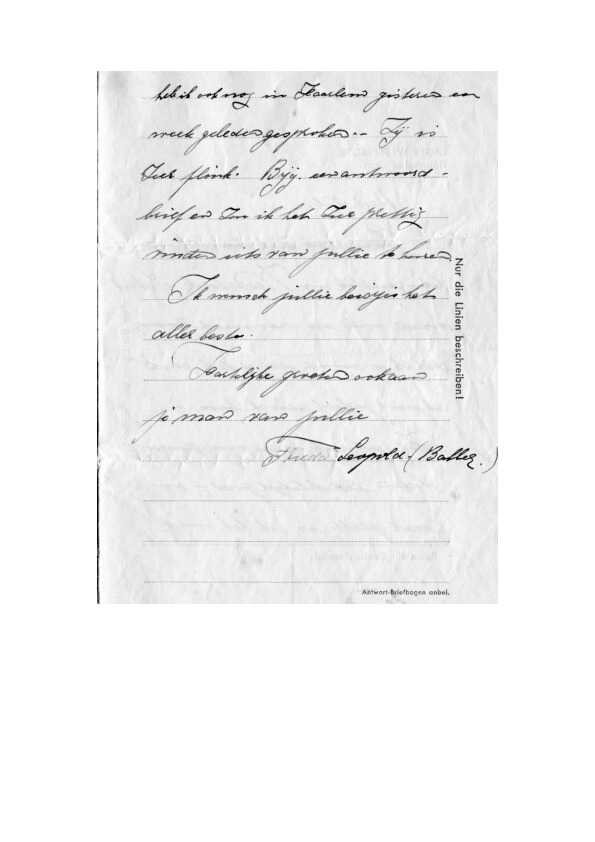 heb ik ook nog in Haarlem gisteren een
week geleden gesproken.- Zij is
zeer flink. Bijg. een antwoord-
brief en zou ik het zeer prettig
vinden iets van jullie te horen.
Ik wensch jullie beidjes het
aller beste.
Hartelijke groeten ook aan
je man van jullie
Frieda Leopold-(Baller.)
Nur die Linien beschreiben!
Antwort-Briefbogen anbei.